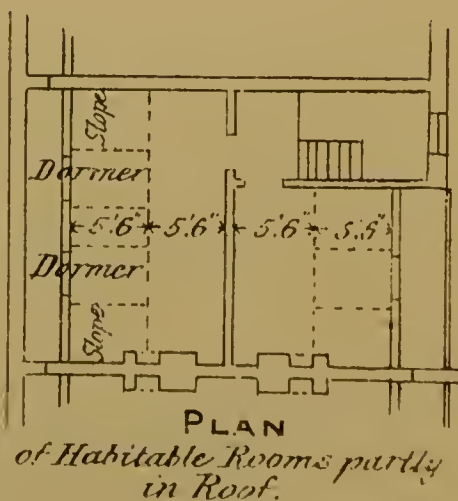 Slope
Dormer
5'6" 5'6" 5'6" 5'5"
Dormer
Slope
PLAN
of Habitable Rooms partly
in Roof.